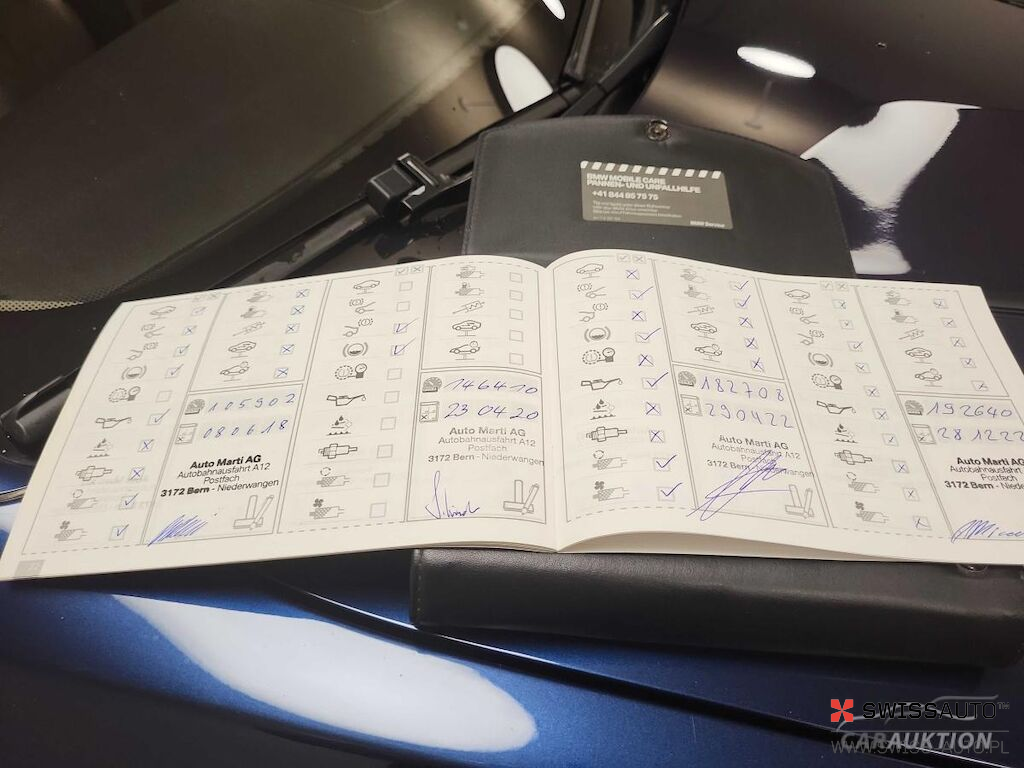 BMW MOBILE CARE
PANNEN- UND UNFALLHILFE
+41 844 85 75 75
BMW Service
105902
080618
Auto Marti AG
Autobahnausfahrt A12
Postfach
3172 Bern - Niederwangen
146410
230420
Auto Marti AG
Autobahnausfahrt A12
Postfach
3172 Bern - Niederwangen
182708
290422
Auto Marti AG
Autobahnausfahrt A12
Postfach
3172 Bern - Niederwangen
192640
281222
Auto Marti AG
Autobahnausfahrt A12
Postfach
3172 Bern - Niederwangen
SWISSAUTO™
CARAUKTION
WWW.SWISSAUTO.PL